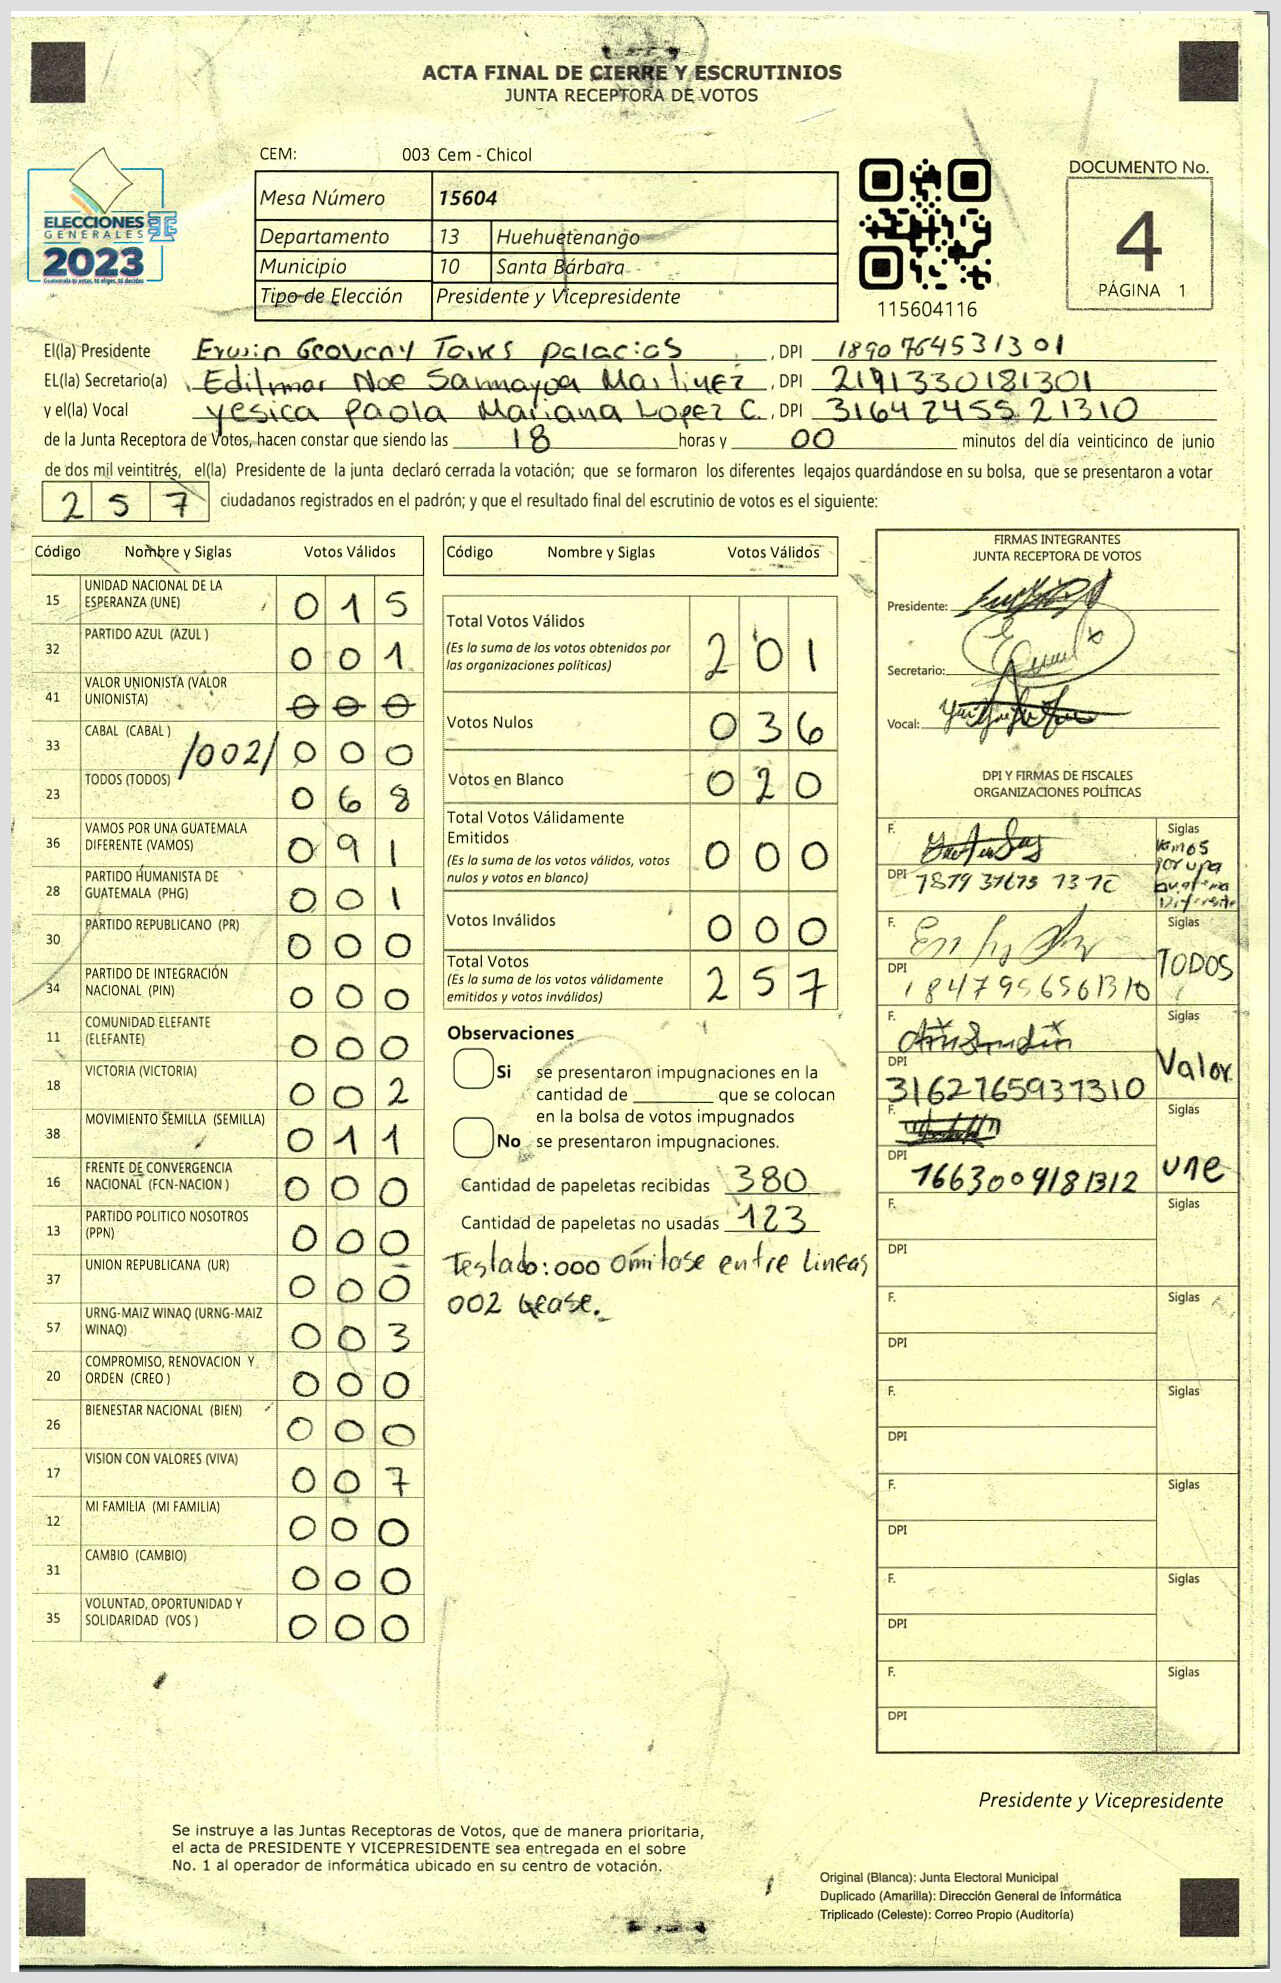 ACTA FINAL DE CIERRE Y ESCRUTINIOS
JUNTA RECEPTORA DE VOTOS
CEM: 003 Cem - Chicol
ELECCIONES
GENERALES
2023
Mesa Número 15604
Departamento 13 Huehuetenango
Municipio 10 Santa Bárbara
Tipo de Elección Presidente y Vicepresidente
115604116
DOCUMENTO No.
4
PÁGINA 1
El(la) Presidente Erwin Geoveny Palacios , DPI 1890764531301
EL(la) Secretario(a) Edilmar Noe Samayoa Martinez , DPI 2191330181301
y el(la) Vocal Yesica Paola Mariana Lopez C. , DPI 3164245521310
de la Junta Receptora de Votos, hacen constar que siendo las 18 horas y 00 minutos del día veinticinco de junio
de dos mil veintitrés, el(la) Presidente de la junta declaró cerrada la votación; que se formaron los diferentes legajos guardándose en su bolsa, que se presentaron a votar
257 ciudadanos registrados en el padrón; y que el resultado final del escrutinio de votos es el siguiente:
Código Nombre y Siglas Votos Válidos
15 UNIDAD NACIONAL DE LA
ESPERANZA (UNE) 015
32 PARTIDO AZUL (AZUL ) 001
41 VALOR UNIONISTA (VALOR
UNIONISTA) 000
33 CABAL (CABAL ) /002/ 000
23 TODOS (TODOS) 068
36 VAMOS POR UNA GUATEMALA
DIFERENTE (VAMOS) 091
28 PARTIDO HUMANISTA DE
GUATEMALA (PHG) 001
30 PARTIDO REPUBLICANO (PR) 000
34 PARTIDO DE INTEGRACIÓN
NACIONAL (PIN) 000
11 COMUNIDAD ELEFANTE
(ELEFANTE) 000
18 VICTORIA (VICTORIA) 002
38 MOVIMIENTO SEMILLA (SEMILLA) 011
16 FRENTE DE CONVERGENCIA
NACIONAL (FCN-NACION ) 000
13 PARTIDO POLITICO NOSOTROS
(PPN) 000
37 UNION REPUBLICANA (UR) 000
57 URNG-MAIZ WINAQ (URNG-MAIZ
WINAQ) 003
20 COMPROMISO, RENOVACION Y
ORDEN (CREO ) 000
26 BIENESTAR NACIONAL (BIEN) 000
17 VISION CON VALORES (VIVA) 007
12 MI FAMILIA (MI FAMILIA) 000
31 CAMBIO (CAMBIO) 000
35 VOLUNTAD, OPORTUNIDAD Y
SOLIDARIDAD (VOS ) 000
Código Nombre y Siglas Votos Válidos
Total Votos Válidos 201
(Es la suma de los votos obtenidos por
las organizaciones políticas)
Votos Nulos 036
Votos en Blanco 020
Total Votos Válidamente
Emitidos 000
(Es la suma de los votos válidos, votos
nulos y votos en blanco)
Votos Inválidos 000
Total Votos 257
(Es la suma de los votos válidamente
emitidos y votos inválidos)
Observaciones
Si se presentaron impugnaciones en la
cantidad de ________ que se colocan
en la bolsa de votos impugnados
No se presentaron impugnaciones.
Cantidad de papeletas recibidas 380
Cantidad de papeletas no usadas 123
Testado: 000 omitase entre Lineas
002 Lease.
FIRMAS INTEGRANTES
JUNTA RECEPTORA DE VOTOS
Presidente:
Secretario:
Vocal:
DPI Y FIRMAS DE FISCALES
ORGANIZACIONES POLÍTICAS
F. Siglas
Vamos
por una
Guatemala
Diferente
DPI
F. Siglas
TODOS
DPI 1847956561310
F. Siglas
Valor
DPI 3162765937310
F. Siglas
une
DPI 1663009181312
F. Siglas
DPI
F. Siglas
DPI
F. Siglas
DPI
F. Siglas
DPI
F. Siglas
DPI
F. Siglas
DPI
Presidente y Vicepresidente
Se instruye a las Juntas Receptoras de Votos, que de manera prioritaria,
el acta de PRESIDENTE Y VICEPRESIDENTE sea entregada en el sobre
No. 1 al operador de informática ubicado en su centro de votación.
Original (Blanca): Junta Electoral Municipal
Duplicado (Amarilla): Dirección General de Informática
Triplicado (Celeste): Correo Propio (Auditoría)